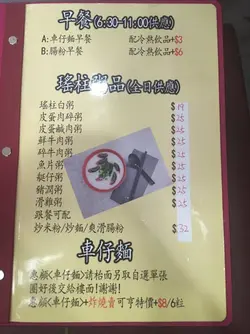 早餐(6:30-11:00供應)
A:車仔麵早餐 配冷熱飲品+$3
B:腸粉早餐 配冷熱飲品+$6
瑤柱粥品(全日供應)
瑤柱白粥 $19
皮蛋肉碎粥 $25
皮蛋鹹肉粥 $25
鮮牛肉粥 $25
碎牛肉粥 $25
魚片粥 $25
艇仔粥 $25
豬潤粥 $25
滑雞粥 $25
跟餐可配
炒米粉/炒麵/爽滑腸粉 $32
車仔麵
惠顧<車仔麵>請枱面另取自選單張
圈好後交給樓面!謝謝!
惠顧<車仔麵>+炸燒賣可享特價+$8/6粒